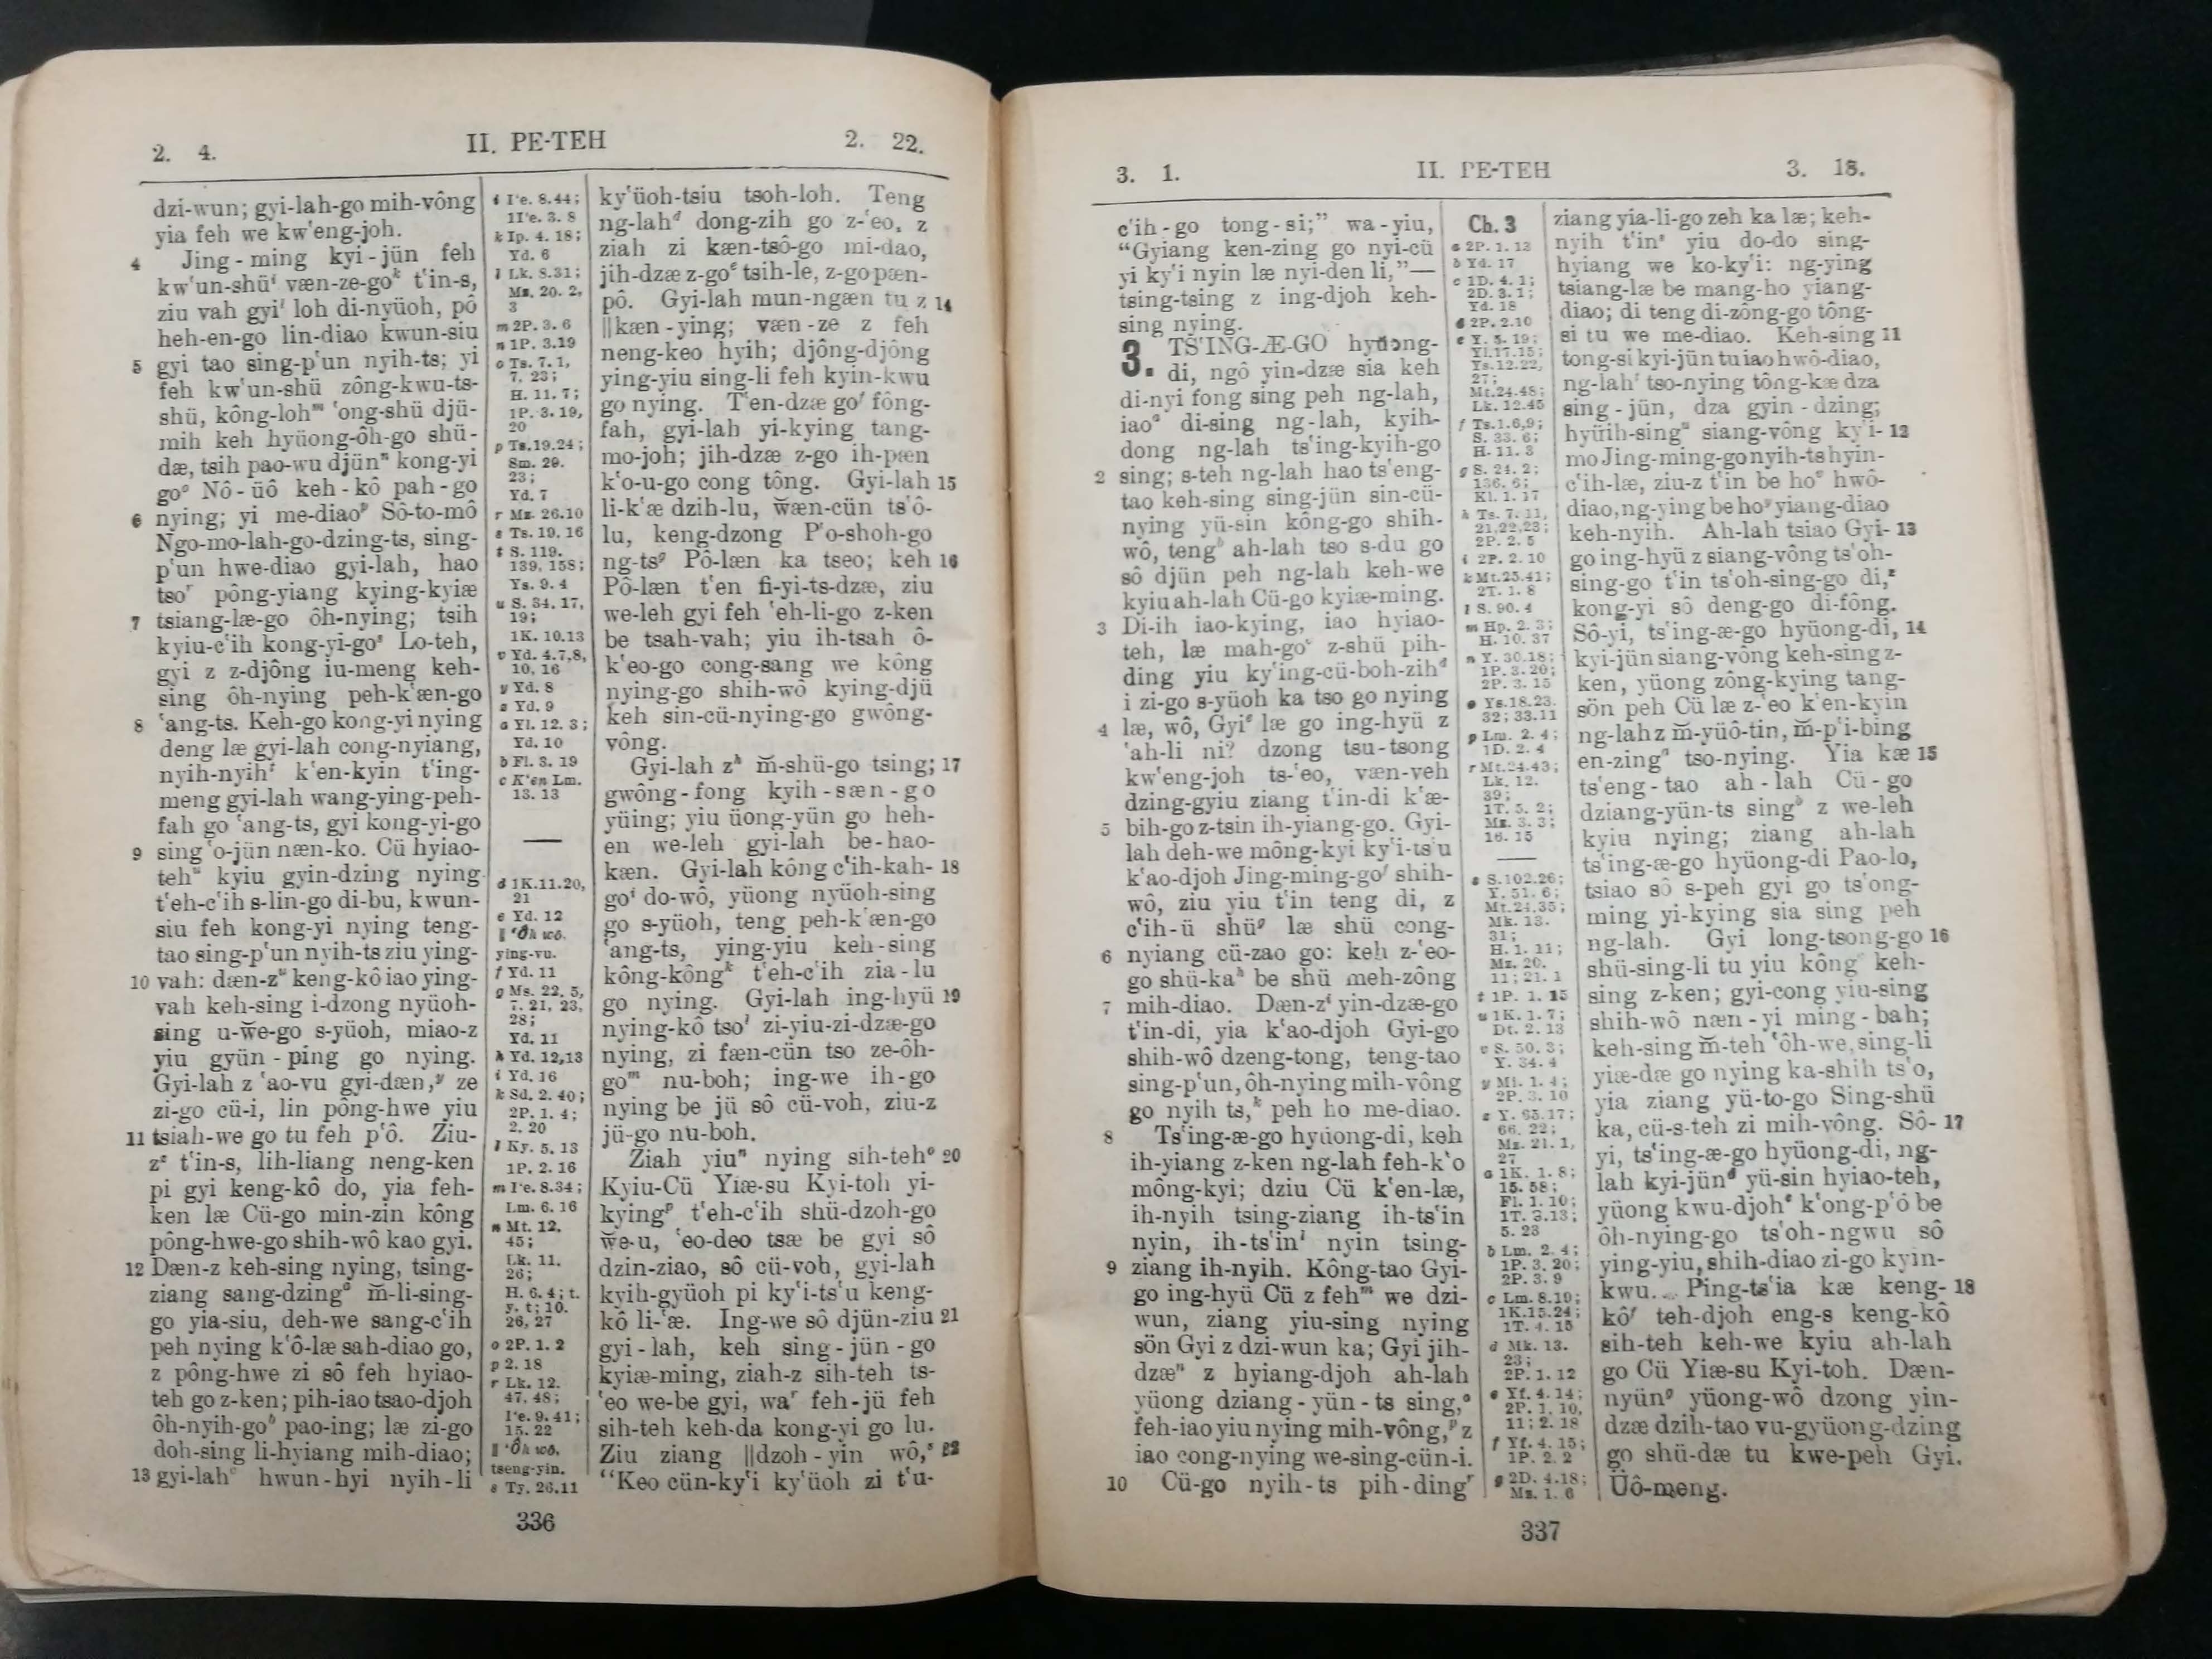 2. 4.
II. PE-TEH
2. 22.
dzi-wun; gyi-lah-go mih-vông
yia feh we kw‘eng-joh.
4 Jing-ming kyi-jün feh
kw‘un-shüⁱ væn-ze-goᵏ t‘in-s,
ziu vah gyiˡ loh di-nyüoh, pô
heh-en-go lin-diao kwun-siu
5 gyi tao sing-p‘un nyih-ts; yi
feh kw‘un-shü zông-kwu-ts-
shü, kông-lohᵐ ‘ong-shü djü-
mih keh hyüong-ôh-go shü-
dæ, tsih pao-wu djünⁿ kong-yi
goᵒ Nô-üô keh-kô pah-go
6 nying; yi me-diaoᵖ Sô-to-mô
Ngo-mo-lah-go-dzing-ts, sing-
p‘un hwe-diao gyi-lah, hao
tsoʳ pông-yiang kying-kyiæ
7 tsiang-læ-go ôh-nying; tsih
kyiu-c‘ih kong-yi-goˢ Lo-teh,
gyi z z-djông iu-meng keh-
sing ôh-nying peh-k‘æn-go
8 ‘ang-ts. Keh-go kong-yi nying
deng læ gyi-lah cong-nyiang,
nyih-nyihᵗ k‘en-kyin t‘ing-
meng gyi-lah wang-ying-peh-
fah go ‘ang-ts, gyi kong-yi-go
9 sing ‘o-jün næn-ko. Cü hyiao-
tehᵘ kyiu gyin-dzing nying
t‘eh-c‘ih s-lin-go di-bu, kwun-
siu feh kong-yi nying teng-
tao sing-p‘un nyih-ts ziu ying-
10 vah: dæn-zᵘ keng-kô iao ying-
vah keh-sing i-dzong nyüoh-
sing u-w̌e-go s-yüoh, miao-z
yiu gyün-ping go nying.
Gyi-lah z ‘ao-vu gyi-dæn,ʸ ze
zi-go cü-i, lin pông-hwe yiu
11 tsiah-we go tu feh p‘ô. Ziu-
zᶻ t‘in-s, lih-liang neng-ken
pi gyi keng-kô do, yia feh-
ken læ Cü-go min-zin kông
pông-hwe-go shih-wô kao gyi.
12 Dæn-z keh-sing nying, tsing-
ziang sang-dzingᵃ m̌-li-sing-
go yia-siu, deh-we sang-c‘ih
peh nying k‘ô-læ sah-diao go,
z pông-hwe zi sô feh hyiao-
teh go z-ken; pih-iao tsao-djoh
ôh-nyih-goᵇ pao-ing; læ zi-go
doh-sing li-hyiang mih-diao;
13 gyi-lahᶜ hwun-hyi nyih-li
i I‘e. 8.44;
1I‘e. 3. 8
k Ip. 4. 18;
Yd. 6
l Lk. 8.31;
Ms. 20. 2,
3
m 2P. 3. 6
n 1P. 3.19
o Ts. 7. 1,
7, 23;
H. 11. 7;
1P. 3. 19,
20
p Ts.19.24;
Sm. 29.
23;
Yd. 7
r Mz. 26.10
s Ts. 19. 16
t S. 119.
139, 158;
Ys. 9. 4
u S. 34. 17,
19;
1K. 10.13
v Yd. 4.7,8,
10, 16
y Yd. 8
z Yd. 9
a Yl. 12. 3;
Yd. 10
b Fl. 3. 19
c K‘en Lm.
13. 13
d 1K.11.20,
21
e Yd. 12
‖ ‘Ôh wô.
ying-vu.
f Yd. 11
g Ms. 22. 5,
7. 21, 23,
28;
Yd. 11
h Yd. 12,13
i Yd. 16
k Sd. 2. 40;
2P. 1. 4;
2. 20
l Ky. 5. 13
1P. 2. 16
m I‘e. 8.34;
Lm. 6. 16
n Mt. 12.
45;
Lk. 11.
26;
H. 6. 4; t.
y. t; 10.
26, 27
o 2P. 1. 2
p 2. 18
r Lk. 12.
47, 48;
I‘e. 9. 41;
15. 22
‖ ‘Ôh wô.
tseng-yin.
s Ty. 26.11
ky‘üoh-tsiu tsoh-loh. Teng
ng-lahᵈ dong-zih go z-‘eo, z
ziah zi kæn-tsô-go mi-dao,
jih-dzæ z-goᵉ tsih-le, z-go pæn-
pô. Gyi-lah mun-ngæn tu z 14
‖kæn-ying; væn-ze z feh
neng-keo hyih; djông-djông
ying-yiu sing-li feh kyin-kwu
go nying. T‘en-dzæ goᶠ fông-
fah, gyi-lah yi-kying tang-
mo-joh; jih-dzæ z-go ih-pæn
k‘o-u-go cong tông. Gyi-lah 15
li-k‘æ dzih-lu, w̌æn-cün ts‘ô-
lu, keng-dzong P‘o-shoh-go
ng-tsᵍ Pô-læn ka tseo; keh 16
Pô-læn t‘en fi-yi-ts-dzæ, ziu
we-leh gyi feh ‘eh-li-go z-ken
be tsah-vah; yiu ih-tsah ô-
k‘eo-go cong-sang we kông
nying-go shih-wô kying-djü
keh sin-cü-nying-go gwông-
vông.
Gyi-lah zʰ m̌-shü-go tsing; 17
gwông-fong kyih-sæn-go
yüing; yiu üong-yün go heh-
en we-leh gyi-lah be-hao-
kæn. Gyi-lah kông c‘ih-kah- 18
goⁱ do-wô, yüong nyüoh-sing
go s-yüoh, teng peh-k‘æn-go
‘ang-ts, ying-yiu keh-sing
kông-kôngᵏ t‘eh-c‘ih zia-lu
go nying. Gyi-lah ing-hyü 19
nying-kô tsoˡ zi-yiu-zi-dzæ-go
nying, zi fæn-cün tso ze-ôh-
goᵐ nu-boh; ing-we ih-go
nying be jü sô cü-voh, ziu-z
jü-go nu-boh.
Ziah yiuⁿ nying sih-tehᵒ 20
Kyiu-Cü Yiæ-su Kyi-toh yi-
kyingᵖ t‘eh-c‘ih shü-dzoh-go
w̌e-u, ‘eo-deo tsæ be gyi sô
dzin-ziao, sô cü-voh, gyi-lah
kyih-gyüoh pi ky‘i-ts‘u keng-
kô li-‘æ. Ing-we sô djün-ziu 21
gyi-lah, keh sing-jün-go
kyiæ-ming, ziah-z sih-teh ts-
‘eo we-be gyi, waʳ feh-jü feh
sih-teh keh-da kong-yi go lu.
Ziu ziang ‖dzoh-yin wô,ˢ 22
“Keo cün-ky‘i ky‘üoh zi t‘u-
336
3. 1.
II. PE-TEH
3. 18.
c‘ih-go tong-si;” wa-yiu,
“Gyiang ken-zing go nyi-cü
yi ky‘i nyin læ nyi-den li,”—
tsing-tsing z ing-djoh keh-
sing nying.
3. TS‘ING-Æ-GO hyüong-
di, ngô yin-dzæ sia keh
di-nyi fong sing peh ng-lah,
iaoᵃ di-sing ng-lah, kyih-
dong ng-lah ts‘ing-kyih-go
2 sing; s-teh ng-lah hao ts‘eng-
tao keh-sing sing-jün sin-cü-
nying yü-sin kông-go shih-
wô, tengᵇ ah-lah tso s-du go
sô djün peh ng-lah keh-we
kyiu ah-lah Cü-go kyiæ-ming.
3 Di-ih iao-kying, iao hyiao-
teh, læ mah-goᶜ z-shü pih-
ding yiu ky‘ing-cü-boh-zihᵈ
i zi-go s-yüoh ka tso go nying
4 læ, wô, Gyiᵉ læ go ing-hyü z
‘ah-li ni? dzong tsu-tsong
kw‘eng-joh ts-‘eo, væn-veh
dzing-gyiu ziang t‘in-di k‘æ-
5 bih-go z-tsin ih-yiang-go. Gyi-
lah deh-we mông-kyi ky‘i-ts‘u
k‘ao-djoh Jing-ming-goᶠ shih-
wô, ziu yiu t‘in teng di, z
c‘ih-ü shüᵍ læ shü cong-
6 nyiang cü-zao go: keh z-‘eo-
go shü-kaʰ be shü meh-zông
7 mih-diao. Dæn-zⁱ yin-dzæ-go
t‘in-di, yia k‘ao-djoh Gyi-go
shih-wô dzeng-tong, teng-tao
sing-p‘un, ôh-nying mih-vông
go nyih ts,ᵏ peh ho me-diao.
8 Ts‘ing-æ-go hyüong-di, keh
ih-yiang z-ken ng-lah feh-k‘o
mông-kyi; dziu Cü k‘en-læ,
ih-nyih tsing-ziang ih-ts‘in
nyin, ih-ts‘inˡ nyin tsing-
9 ziang ih-nyih. Kông-tao Gyi-
go ing-hyü Cü z fehᵐ we dzi-
wun, ziang yiu-sing nying
sön Gyi z dzi-wun ka; Gyi jih-
dzæⁿ z hyiang-djoh ah-lah
yüong dziang-yün-ts sing,ᵒ
feh-iao yiu nying mih-vông,ᵖ z
iao cong-nying we-sing-cün-i.
10 Cü-go nyih-ts pih-dingʳ
Ch. 3
a 2P. 1. 13
b Yd. 17
c 1D. 4. 1;
2D. 3. 1;
Yd. 18
d 2P. 2.10
e Y. 5. 19;
Yl.17.15;
Ys.12.22,
27;
Mt.24.48;
Lk. 12.45
f Ts.1.6,9;
S. 33. 6;
H. 11. 3
g S. 24. 2;
136. 6;
Kl. 1. 17
h Ts. 7. 11,
21,22,23;
2P. 2. 5
i 2P. 2. 10
k Mt.25.41;
2T. 1. 8
l S. 90. 4
m Hp. 2. 3;
H. 10. 37
n Y. 30.18;
1P. 3. 20;
2P. 3. 15
o Ys.18.23.
32; 33.11
p Lm. 2. 4;
1D. 2. 4
r Mt.24.43;
Lk. 12.
39;
1T. 5. 2;
Mz. 3. 3;
16. 15
s S.102.26;
Y. 51. 6;
Mt.24.35;
Mk. 13.
31;
H. 1. 11;
Mz. 20.
11; 21. 1
t 1P. 1. 15
u 1K. 1. 7;
Dt. 2. 13
v S. 50. 3;
Y. 34. 4
y Mi. 1. 4;
2P. 3. 10
z Y. 65.17;
66. 22;
Mz. 21. 1,
27
a 1K. 1. 8;
15. 58;
Fl. 1. 10;
1T. 3.13;
5. 23
b Lm. 2. 4;
1P. 3. 20;
2P. 3. 9
c Lm. 8.19;
1K.15.24;
1T. 4. 15
d Mk. 13.
23;
2P. 1. 12
e Yf. 4. 14;
2P. 1. 10,
11; 2. 18
f Yf. 4. 15;
1P. 2. 2
g 2D. 4.18;
Mz. 1. 6
ziang yia-li-go zeh ka læ; keh-
nyih t‘inˢ yiu do-do sing-
hyiang we ko-ky‘i: ng-ying
tsiang-læ be mang-ho yiang-
diao; di teng di-zông-go tông-
si tu we me-diao. Keh-sing 11
tong-si kyi-jün tu iao hwô-diao,
ng-lahᵗ tso-nying tông-kæ dza
sing-jün, dza gyin-dzing;
hyüih-singᵘ siang-vông ky‘i- 12
mo Jing-ming-go nyih-ts hyin-
c‘ih-læ, ziu-z t‘in be hoᵛ hwô-
diao, ng-ying be hoʸ yiang-diao
keh-nyih. Ah-lah tsiao Gyi- 13
go ing-hyü z siang-vông ts‘oh-
sing-go t‘in ts‘oh-sing-go di,ᶻ
kong-yi sô deng-go di-fông.
Sô-yi, ts‘ing-æ-go hyüong-di, 14
kyi-jün siang-vông keh-sing z-
ken, yüong zông-kying tang-
sön peh Cü læ z-‘eo k‘en-kyin
ng-lah z m̌-yüô-tin, m̌-p‘i-bing
en-zingᵃ tso-nying. Yia kæ 15
ts‘eng-tao ah-lah Cü-go
dziang-yün-ts singᵇ z we-leh
kyiu nying; ziang ah-lah
ts‘ing-æ-go hyüong-di Pao-lo,
tsiao sô s-peh gyi go ts‘ong-
ming yi-kying sia sing peh
ng-lah. Gyi long-tsong-go 16
shü-sing-li tu yiu kôngᶜ keh-
sing z-ken; gyi-cong yiu-sing
shih-wô næn-yi ming-bah;
keh-sing m̌-teh ‘ôh-we, sing-li
yiæ-dæ go nying ka-shih ts‘o,
yia ziang yü-to-go Sing-shü
ka, cü-s-teh zi mih-vông. Sô- 17
yi, ts‘ing-æ-go hyüong-di, ng-
lah kyi-jünᵈ yü-sin hyiao-teh,
yüong kwu-djohᵉ k‘ong-p‘ô be
ôh-nying-go ts‘oh-ngwu sô
ying-yiu, shih-diao zi-go kyin-
kwu. Ping-ts‘ia kæ keng- 18
kôᶠ teh-djoh eng-s keng-kô
sih-teh keh-we kyiu ah-lah
go Cü Yiæ-su Kyi-toh. Dæn-
nyünᵍ yüong-wô dzong yin-
dzæ dzih-tao vu-gyüong-dzing
go shü-dæ tu kwe-peh Gyi.
Üô-meng.
337